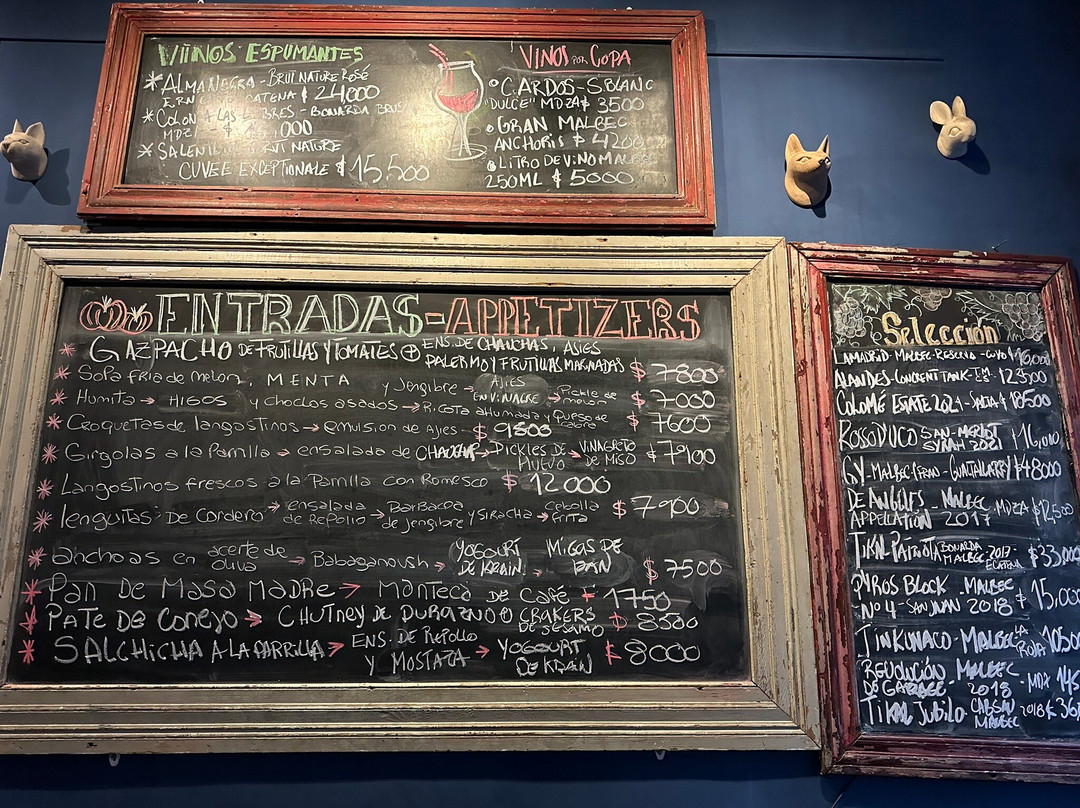 VIINOS ESPUMANTES
* ALMA NEGRA - BRUT NATURE ROSÉ
CATENA $ 24.000
* COLON
MDZ
* SALEN NATURE
CUVEE EXCEPTIONALE $ 15.500
VINOS POR COPA
C. ARDOS - S. BLANC
"DULCE" MDZA $ 3500
GRAN MALBEC
ANCHORIS $ 4200
LITRO DE VINO MALBEC
250ML $ 5000
ENTRADAS = APPETIZERS
* GAZPACHO DE FRUTILLAS Y TOMATES + ENS. DE CHAUCHAS, AJIES
PALERMO Y FRUTILLAS MARINADAS $ 7800
* Sopa fria de melon, MENTA y Jengibre → AJIES EN VINAGRE → Pickle de melon $ 7000
* Humita → HIGOS y choclos asados → Ricota ahumada y Queso de cabra $ 7600
* Croquetas de langostinos → emulsion de Ajies - $ 9800
* Girgolas a la Parrilla → ensalada de CHAUCHA → PICKLES DE HUEVO → VINAGRETA DE MISO $ 7900
* Langostinos frescos a la Parrilla con Romesco $ 12000
* lenguitas De Cordero → ensalada de Repollo → Barbacoa de jengibre y Siracha → Cebolla frita $ 7900
* anchoas en aceite de oliva → Babaganoush → YOGOURT DE KRAIN → MIGAS DE PAN $ 7500
* Pan de Masa Madre → Manteca de Café $ 1750
* PATE DE Conejo → CHUTNEY DE DURAZNO CRAKERS DE SESAMO $ 8500
* SALCHICHA A LA PARRILLA → ENS. DE REPOLLO
Y MOSTAZA → YOGOURT DE KRAIN $ 8000
Selección
LAMADRID - MALBEC - RESERVA
ALANDES - CONCRENT TANK
COLOMÉ ESTATE 2021 - SALTA $ 18500
ROSSO D'UCO SAN - MERLOT
SYRAH 2021
GY - MALBEC/FRAN - GUALTALLARY $ 48000
DE ANGELES - MALBEC MDZA $ 12500
APPELLATION 2017
TIKAL PATRIOTA BONARDA MALBEC 2017 $ 33.000
PYROS BLOCK - MALBEC
Nº 4 - SAN JUAN 2018 $ 15.000
JINKUNACO - MALBEC LA RIOJA
REVOLUCIÓN MALBEC
DE GARAGE - 2018 - MDZ
TIKAL JUBILO - CAB SAU MALBEC 2018